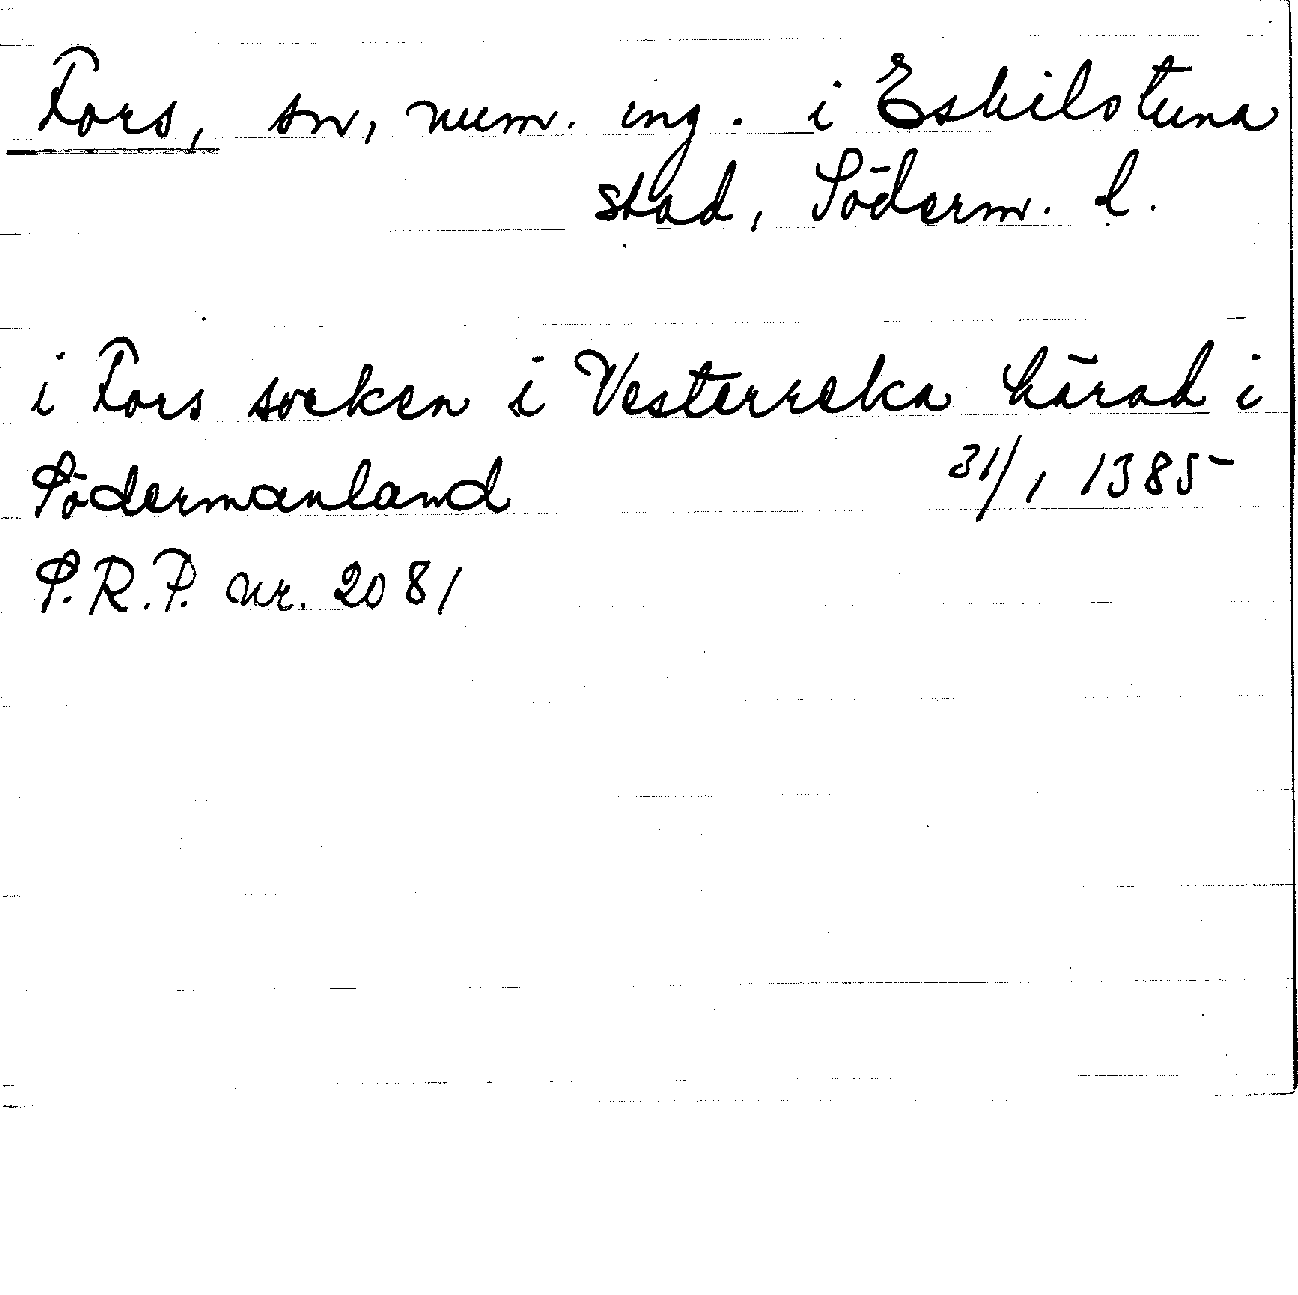 Fors, sn, num. ing. i Eskilstuna
stad, Söderm. l.
i Fors socken i Vesterreka härad i
Södermanland 31/1 1385
S.R.P. nr. 2081